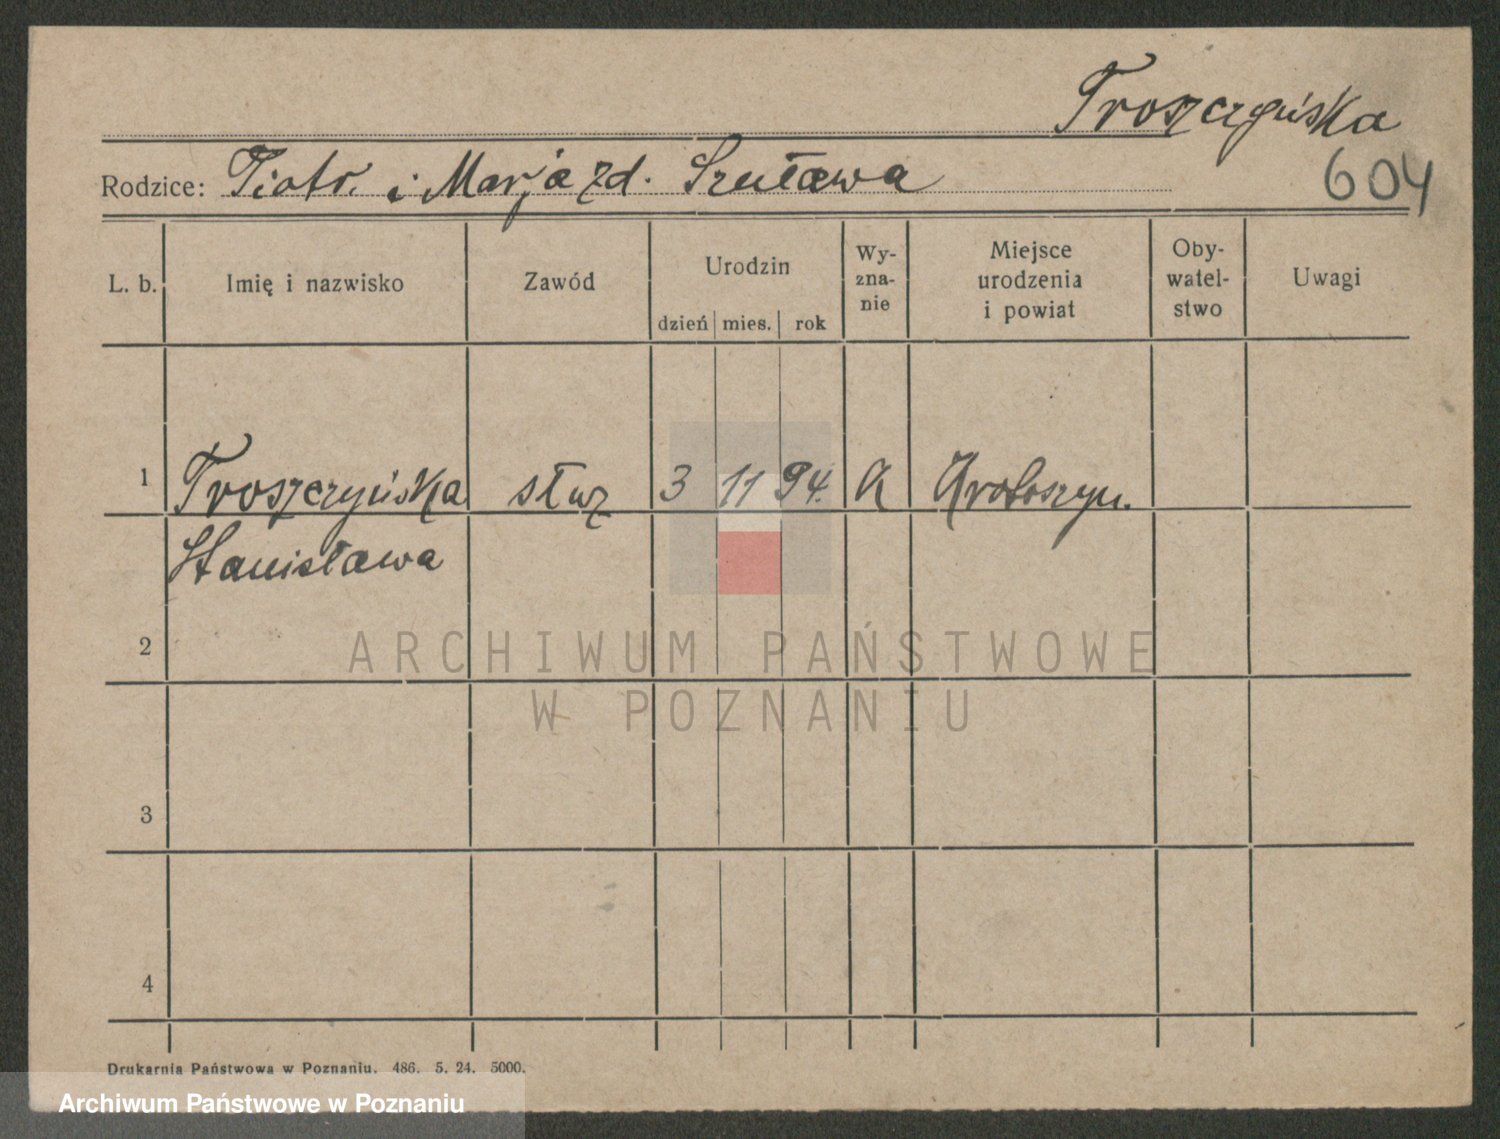 Troszczyńska
Rodzice: Piotr. i Marja zd. Szuława
604
L. b. Imię i nazwisko Zawód Urodzin Wy- Miejsce Oby- Uwagi
zna- urodzenia watel-
nie i powiat stwo
dzień mies. rok
1 Troszczyńska służ 3 11 94. K Krotoszyn.
Stanisława
2
ARCHIWUM PAŃSTWOWE
W POZNANIU
3
4
Drukarnia Państwowa w Poznaniu. 486. 5. 24. 5000.
Archiwum Państwowe w Poznaniu